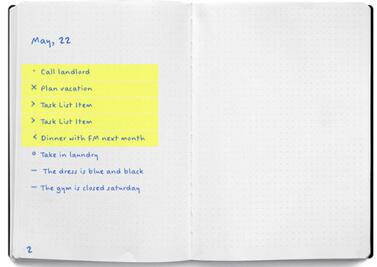 May, 22
· Call landlord
× Plan vacation
> Task List Item
> Task List Item
< Dinner with FM next month
o Take in laundry
— The dress is blue and black
— The gym is closed saturday
2